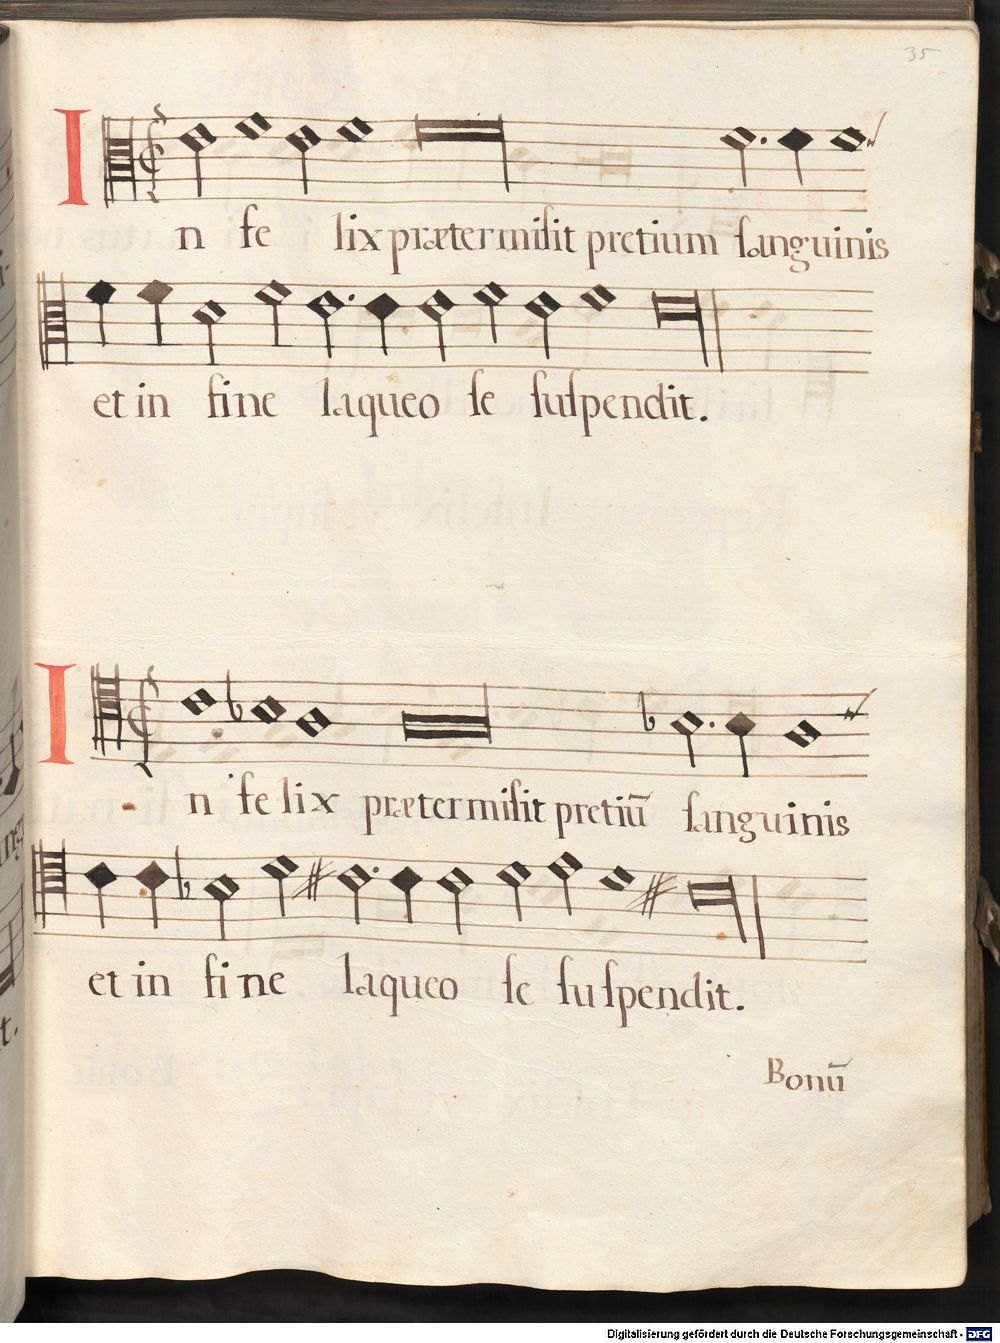 35
In fe lix prætermisit pretium sanguinis
et in fine laqueo se suspendit.
In fe lix prætermisit pretiū sanguinis
et in fine laqueo se suspendit.
Bonū
Digitalisierung gefördert durch die Deutsche Forschungsgemeinschaft - DFG